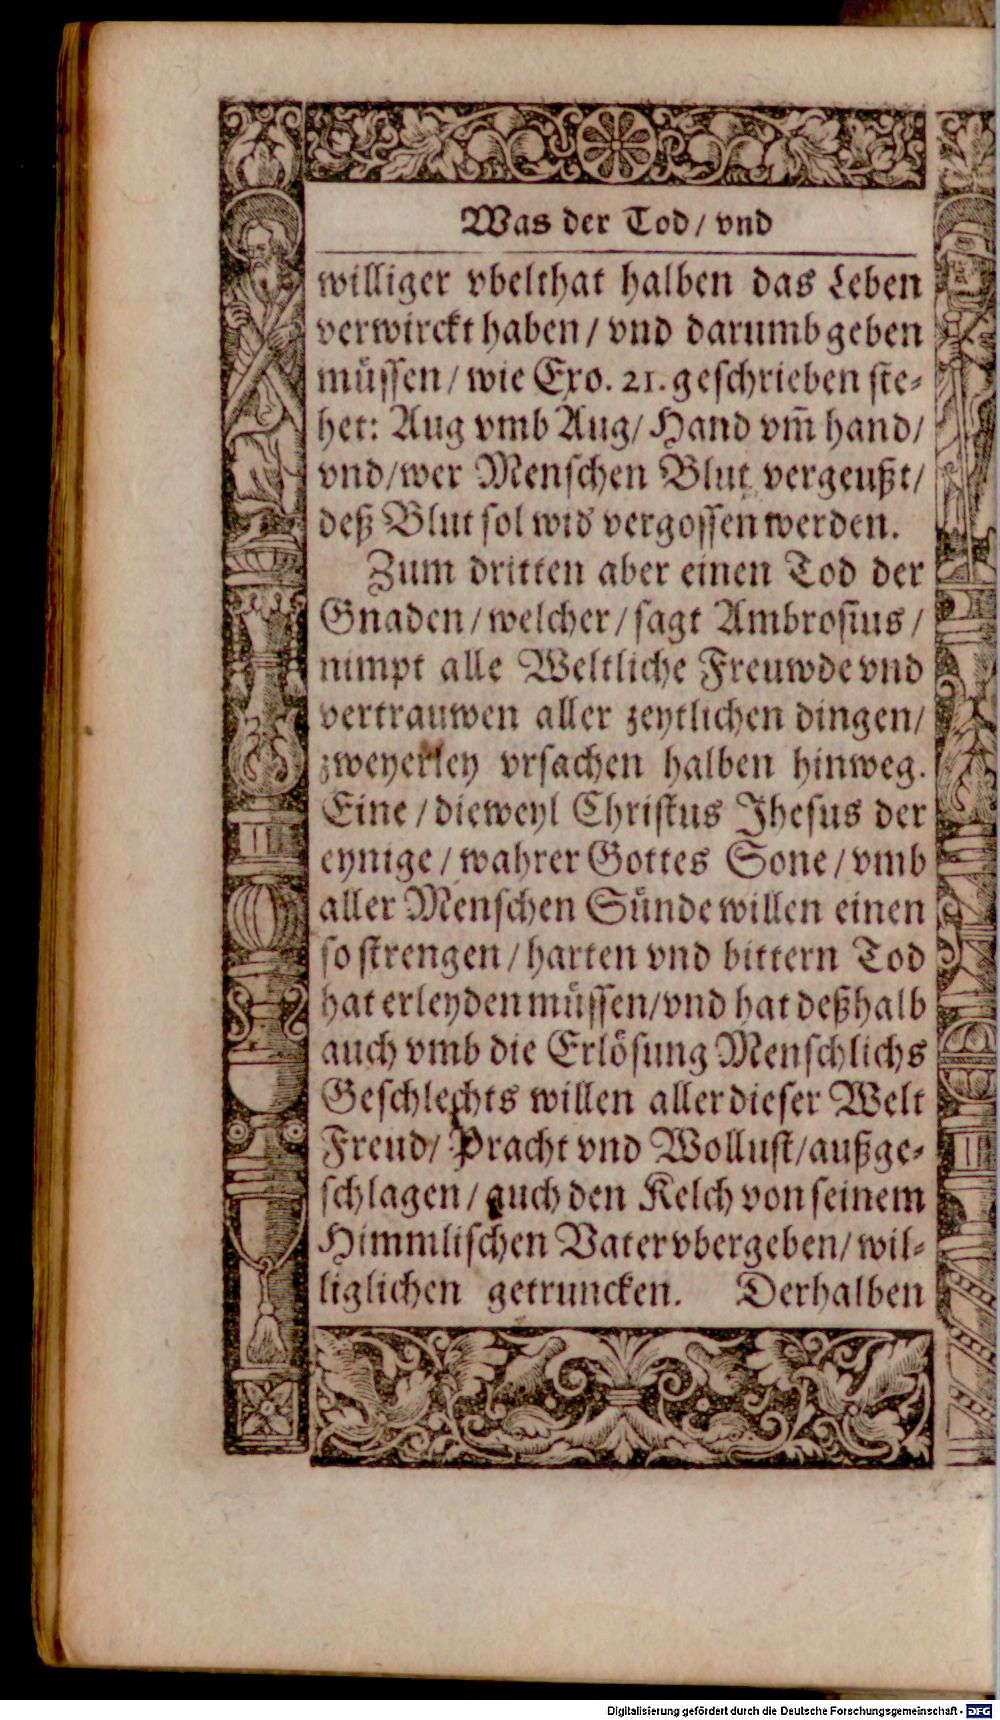 Was der Tod/ vnd
williger vbelthat halben das Leben
verwirckt haben/ vnd darumb geben
müssen/ wie Exo. 21. geschrieben ste-
het: Aug vmb Aug/ Hand vm̃ hand/
vnd/wer Menschen Blut vergeußt/
deß Blut sol wid vergossen werden.
Zum dritten aber einen Tod der
Gnaden/ welcher/ sagt Ambrosius/
nimpt alle Weltliche Freuwde vnd
vertrauwen aller zeytlichen dingen/
zweyerley vrsachen halben hinweg.
Eine/ dieweyl Christus Jhesus der
eynige/ wahrer Gottes Sone/ vmb
aller Menschen Sünde willen einen
so strengen/ harten vnd bittern Tod
hat erleyden müssen/vnd hat deßhalb
auch vmb die Erlösung Menschlichs
Geschlechts willen aller dieser Welt
Freud/ Pracht vnd Wollust/außge-
schlagen/ auch den Kelch von seinem
Himmlischen Vater vbergeben/ wil-
liglichen getruncken. Derhalben
Digitalisierung gefördert durch die Deutsche Forschungsgemeinschaft - DFG